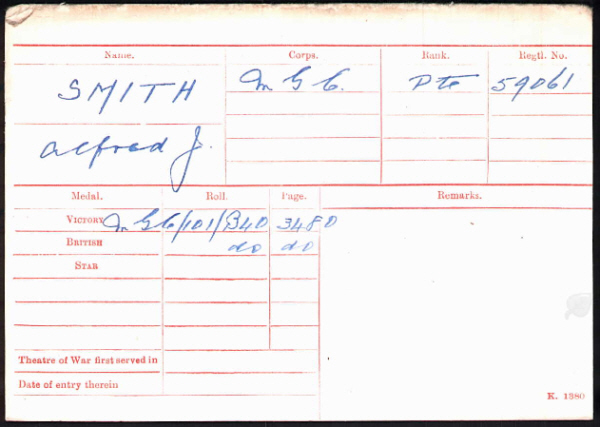 Name. Corps. Rank. Regtl. No.
SMITH M G C. Pte 59061
Alfred J.
Medal. Roll. Page. Remarks.
VICTORY M G C/101/B40 3480
BRITISH do do
STAR
Theatre of War first served in
Date of entry therein
K. 1380